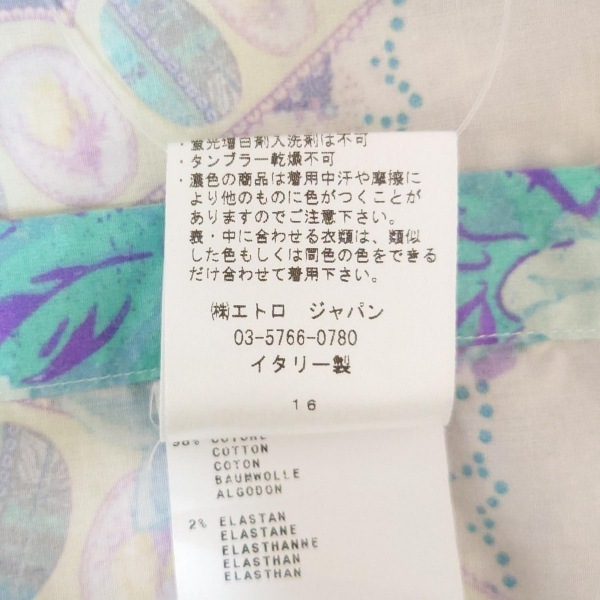 ・蛍光増白剤入洗剤は不可
・タンブラー乾燥不可
・濃色の商品は着用中汗や摩擦に
より他のものに色がつくことが
ありますのでご注意下さい。
表・中に合わせる衣類は、類似
した色もしくは同色の色をできる
だけ合わせて着用下さい。
㈱エトロ ジャパン
03-5766-0780
イタリー製
16
98% COTONE
COTTON
COTON
BAUMWOLLE
ALGODON
2% ELASTAN
ELASTANE
ELASTHANNE
ELASTHAN
ELASTHAN